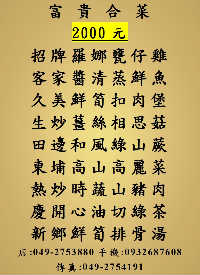 富貴合菜
2000 元
招牌羅娜甕仔雞
客家醬清蒸鮮魚
久美鮮筍扣肉堡
生炒薑絲相思菇
田邊和風綠山蕨
東埔高山高麗菜
熱炒時蔬山豬肉
慶開心油切綠茶
新鄉鮮筍排骨湯
店:049-2753880 手機:0932687608
傳真:049-2754191